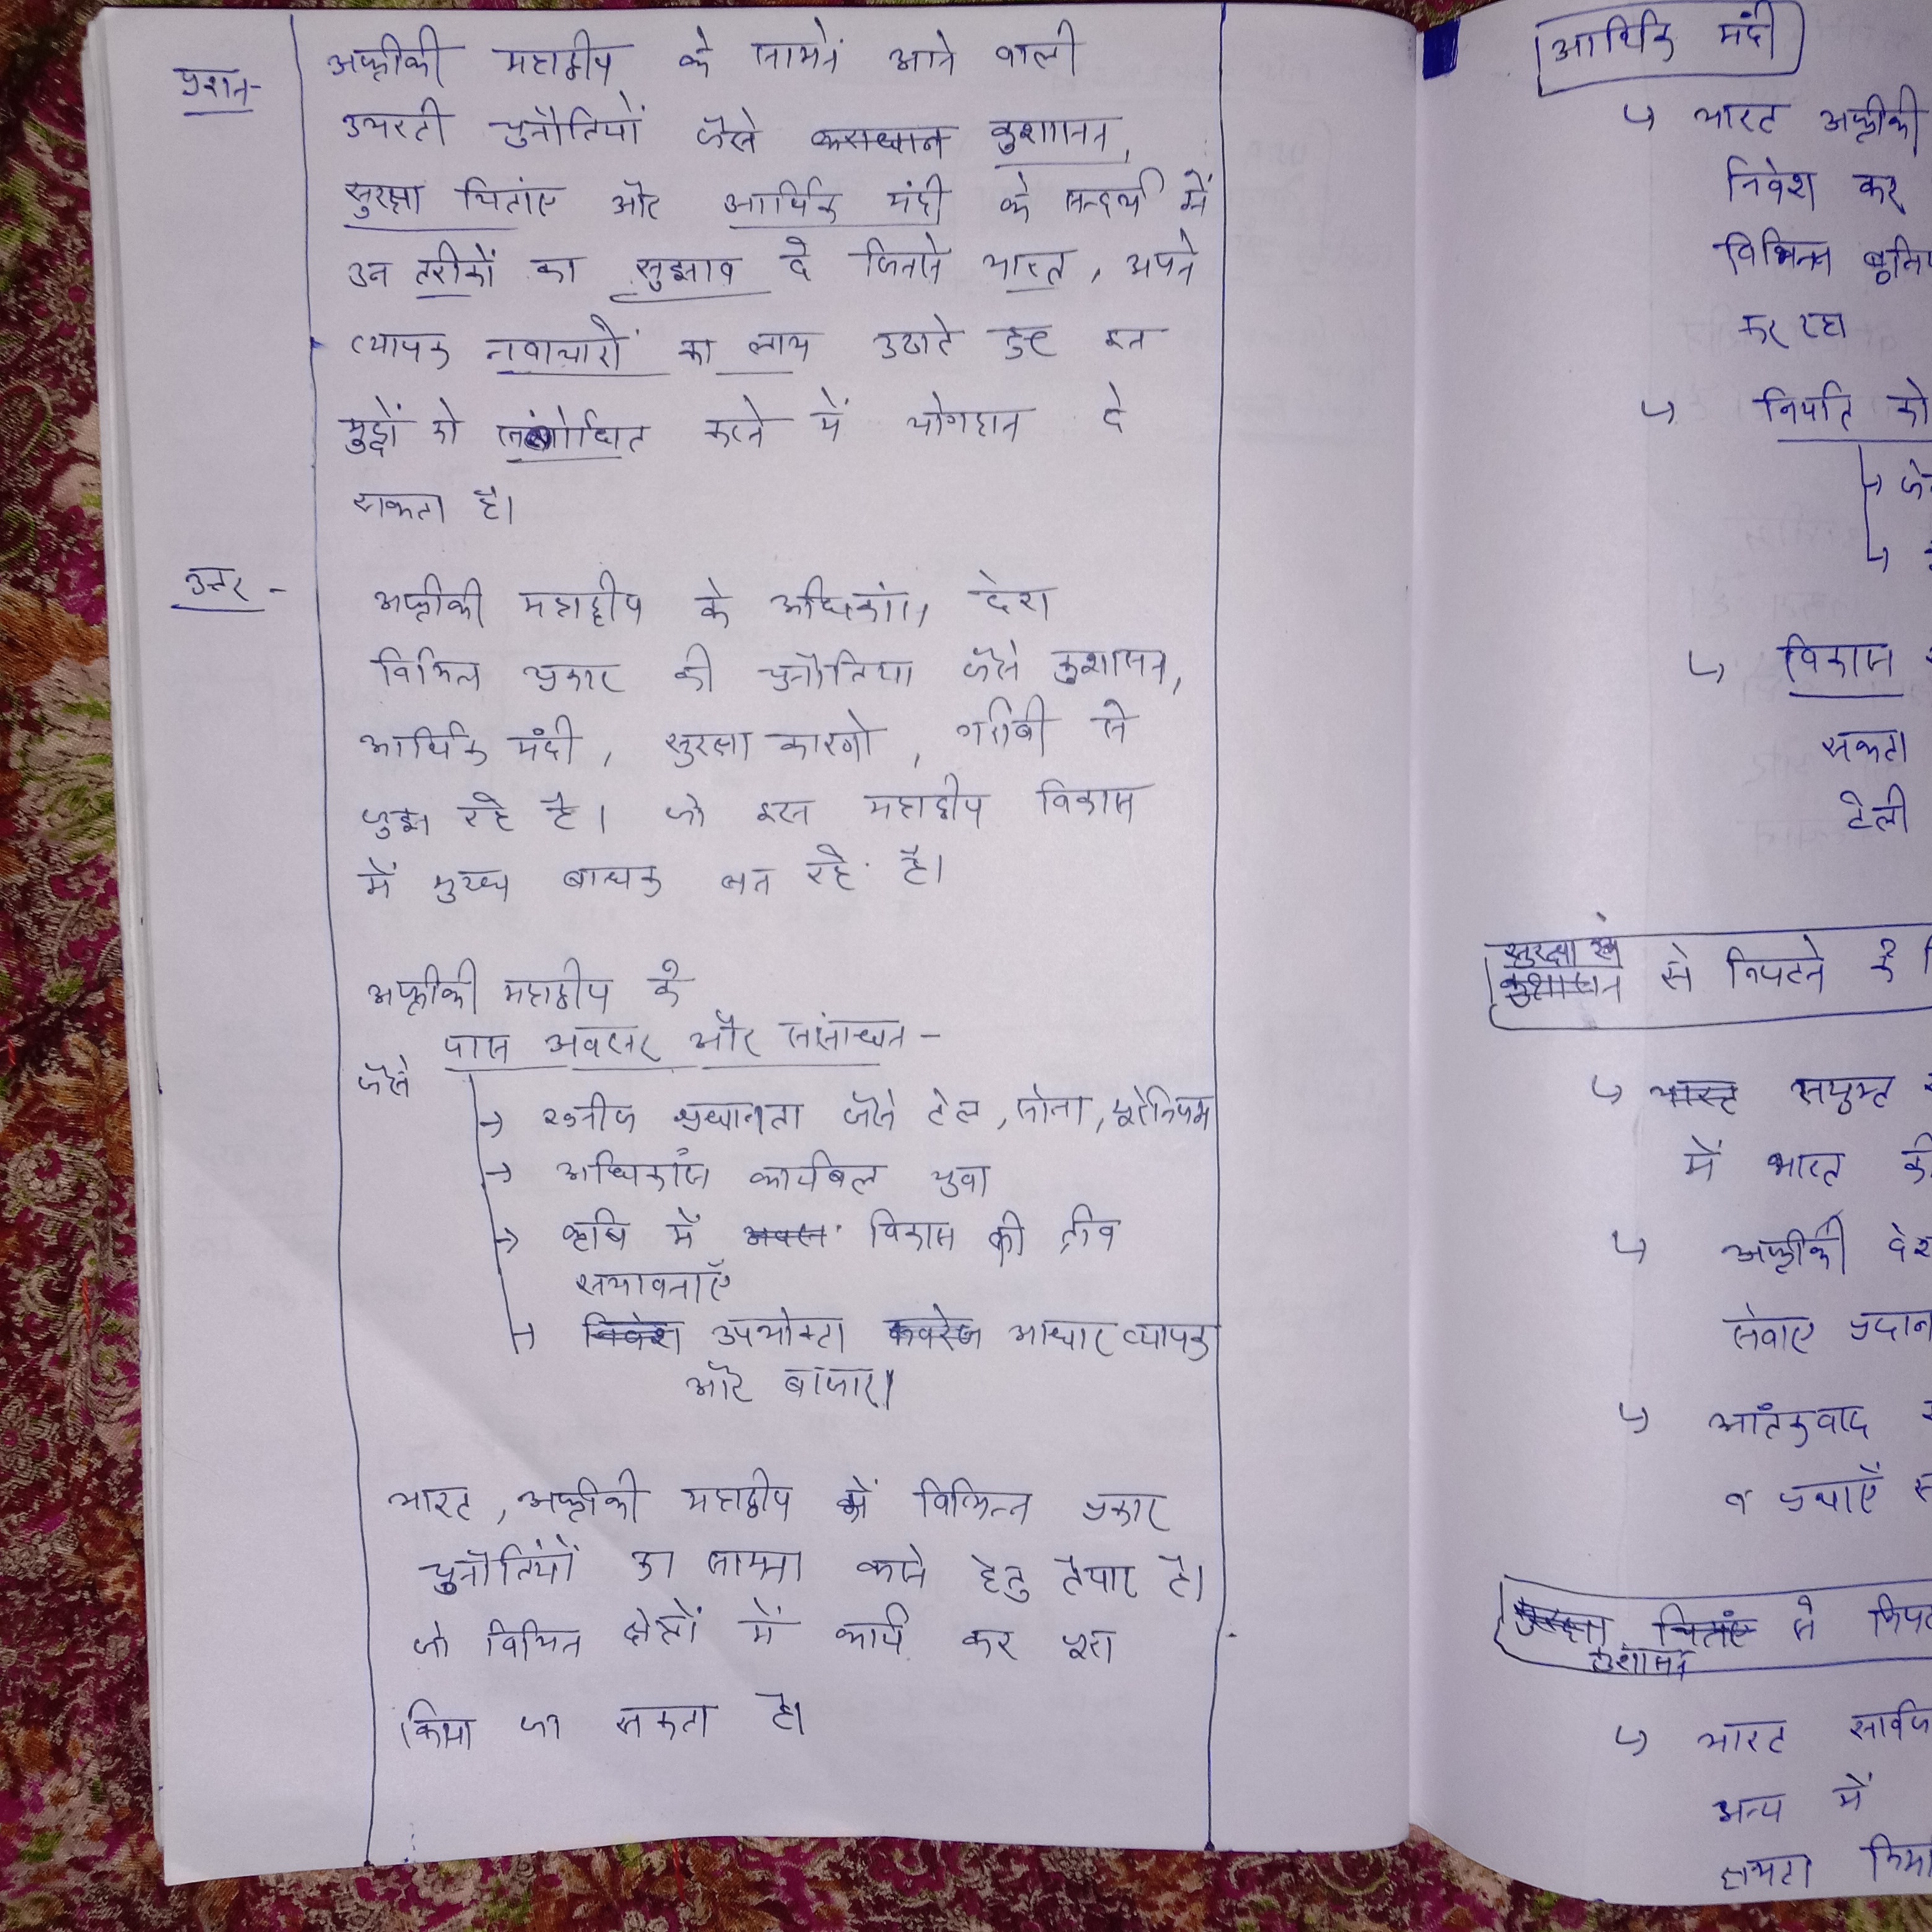 प्रशन-
अफ्रीकी महाद्वीप के सामने आने वाली
उभरती चुनौतियों जैसे कुशासन,
सुरक्षा चिंताए और आर्थिक मंदी के सन्दर्भ में
उन तरीकों का सुझाव दे जिनसे भारत, अपने
व्यापक नवाचारों का लाभ उठाते हुए इन
मुद्दों को संबोधित करने में योगदान दे
सकता है।
उत्तर -
अफ्रीकी महाद्वीप के अधिकांश देश
विभिन्न प्रकार की चुनौतिया जैसे कुशासन,
आर्थिक मंदी, सुरक्षा कारणो, गरीबी से
जुझ रहे है। जो इस महाद्वीप विकास
में मुख्य बाधक बन रहे है।
अफ्रीकी महाद्वीप के
पास अवसर और संसाधन -
जैसे
→ खनीज प्रधानता जैसे तेल, सोना, यूरेनियम
→ अधिकांश कार्यबल युवा
→ कृषि में विकास की तीव्र
सभावनाएँ
→ उपभोक्ता आधार व्यापक
और बाजार।
भारत, अफ्रीकी महाद्वीप में विभिन्न प्रकार
चुनौतियों का सामना करने हेतु तैयार है।
जो विभिन्न क्षेत्रों में कार्य कर पूरा
किया जा सकता है।
आर्थिक मंदी
↳ भारत अफ्रीकी
निवेश कर
विभिन्न
कर रहा
↳ निर्यात को
↳ विकास
सकता
टेली
सुरक्षा से निपटने के
↳ सयुक्त
में भारत
↳ अफ्रीकी
सेवाए प्रदान
↳ आंतकवाद
व प्रथाएँ
कुशासन से
↳ भारत
अन्य में
क्षमता